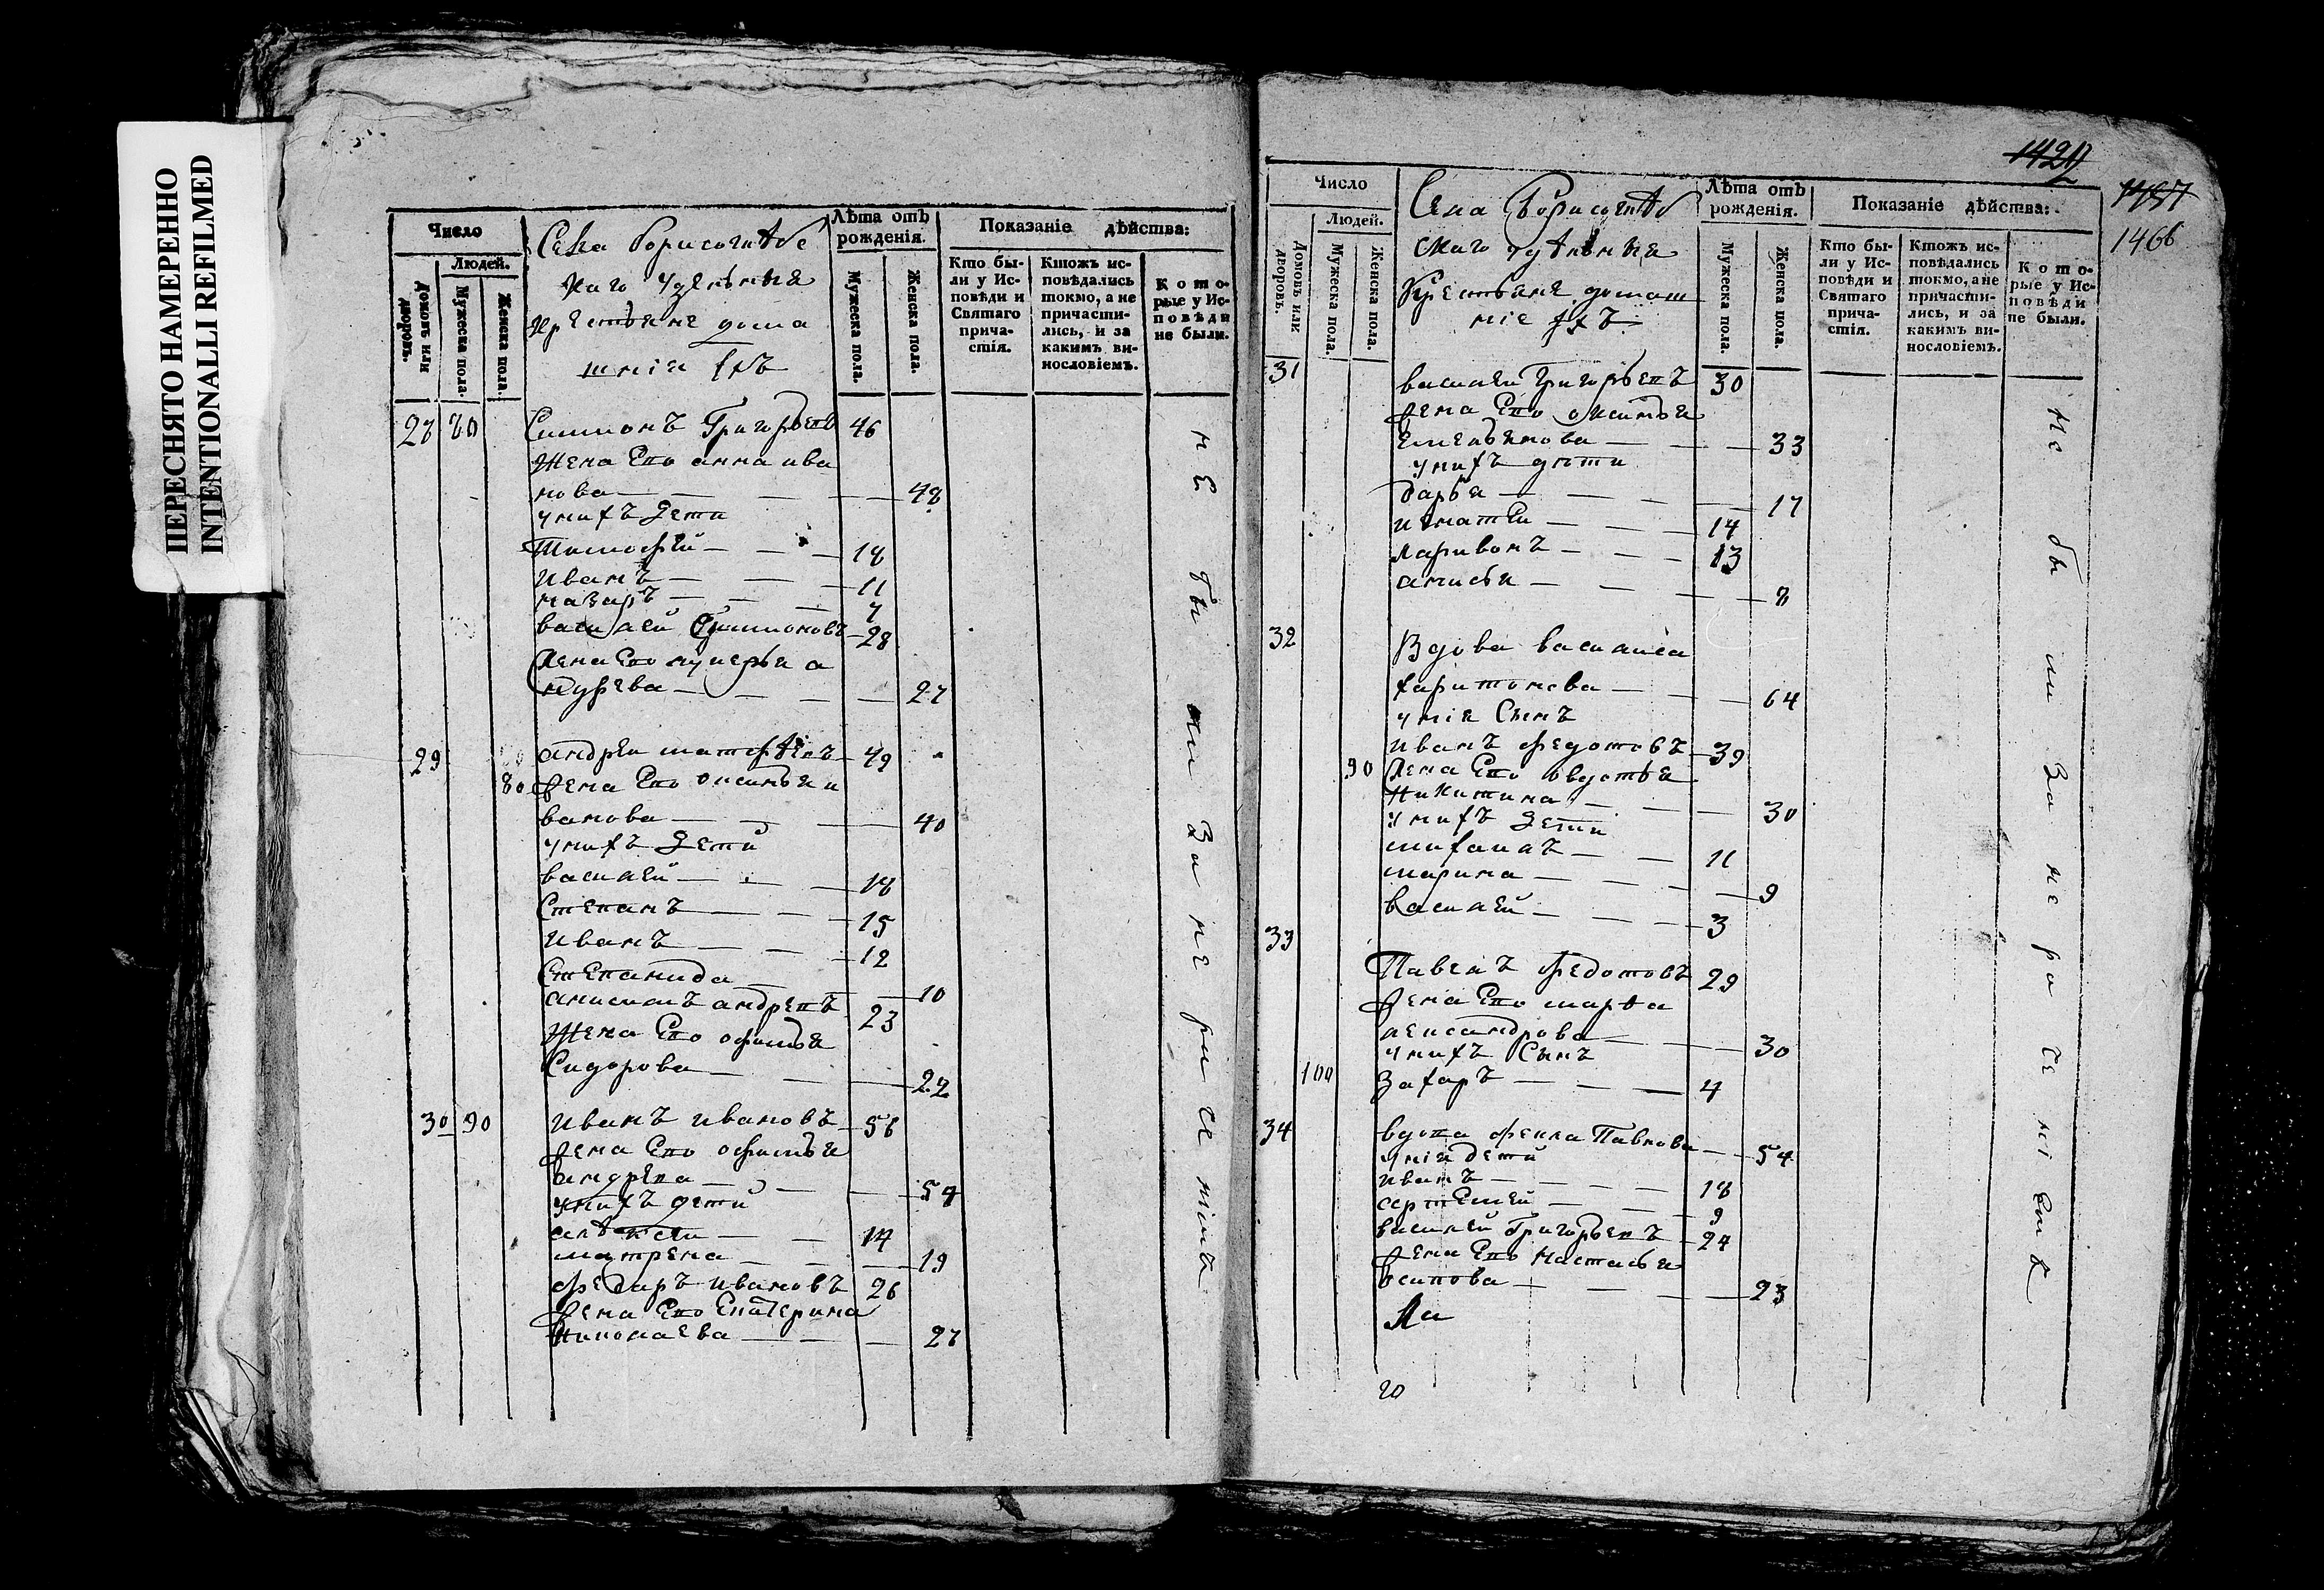 ПЕРЕСНЯТО НАМЕРЕННО
INTENTIONALLI REFILMED
Число
Людей.
Домовъ или дворовъ.
Мужеска пола.
Женска пола.
Села Борисоглѣбс
каго удельныя
крестьяне дома
шнія ихъ
Лѣта отъ рожденія.
Мужеска пола.
Женска пола.
Показаніе дѣйства:
Кто бы-
ли у Ис-
повѣди и
Святаго
прича-
стія.
Ктожъ ис-
повѣдались
токмо, а не
причасти-
лись, и за
какимъ ви-
нословіемъ.
К о т о-
рые у Ис-
п о в ѣ д и
не были.
Симионъ Григорьевъ 46
Жена Ево анна ива
нова 48
унихъ дети
Тимофѣй 18
Иванъ 11
назаръ 7
василей Симионовъ 28
жена Ево
27
29 андреи матфѣевъ 49
80 жена Ево оксинья и
ванова 40
унихъ дети
василей 18
Степанъ 15
Иванъ 12
Степанида 10
анисимъ андревъ 23
Жена Ево офимья
Сидорова 22
30 90 Иванъ ивановъ 56
жена Ево офимья
андрева 54
унихъ дети
алѣксеи 14
матрена 19
федаръ ивановъ 26
жена Ево Екатерина
Николаева 27
не бы ли За не ра че ніемъ
1424
1457
1466
Число
Людей.
Домовъ или дворовъ.
Мужеска пола.
Женска пола.
Села Борисоглѣб
скаго удѣльныя
Крестьяне домаш
ніе ихъ
Лѣта отъ рожденія.
Мужеска пола.
Женска пола.
Показаніе дѣйства:
Кто бы-
ли у Ис-
повѣди и
Святаго
прича-
стія.
Ктожъ ис-
повѣдались
токмо, а не
причасти-
лись, и за
какимъ ви-
нословіемъ.
К о т о-
рые у Ис-
п о в ѣ д и
не были.
31
василеи Григорьевъ 30
жена Ево оксинья
Емельянова 33
унихъ дѣти
дарья 17
игнатеи 14
ларивонъ 13
анисья 8
32 Вдова василиса
харитонова 64
унія Сынъ
иванъ федотовъ 39
90 жена Ево овдотья
Никитина 30
унихъ дети
михаилъ 11
марина 9
василей 3
33
Павелъ федотовъ 29
жена Ево марѳа
лександрова 30
унихъ Сынъ
100 Захаръ 4
34 вдова фекла Павлова 54
унія дети
иванъ 18
артемей 9
василей Григорьевъ 24
жена Ево Настасья
осипова 23
20
не бы ли За не ра че ні ем